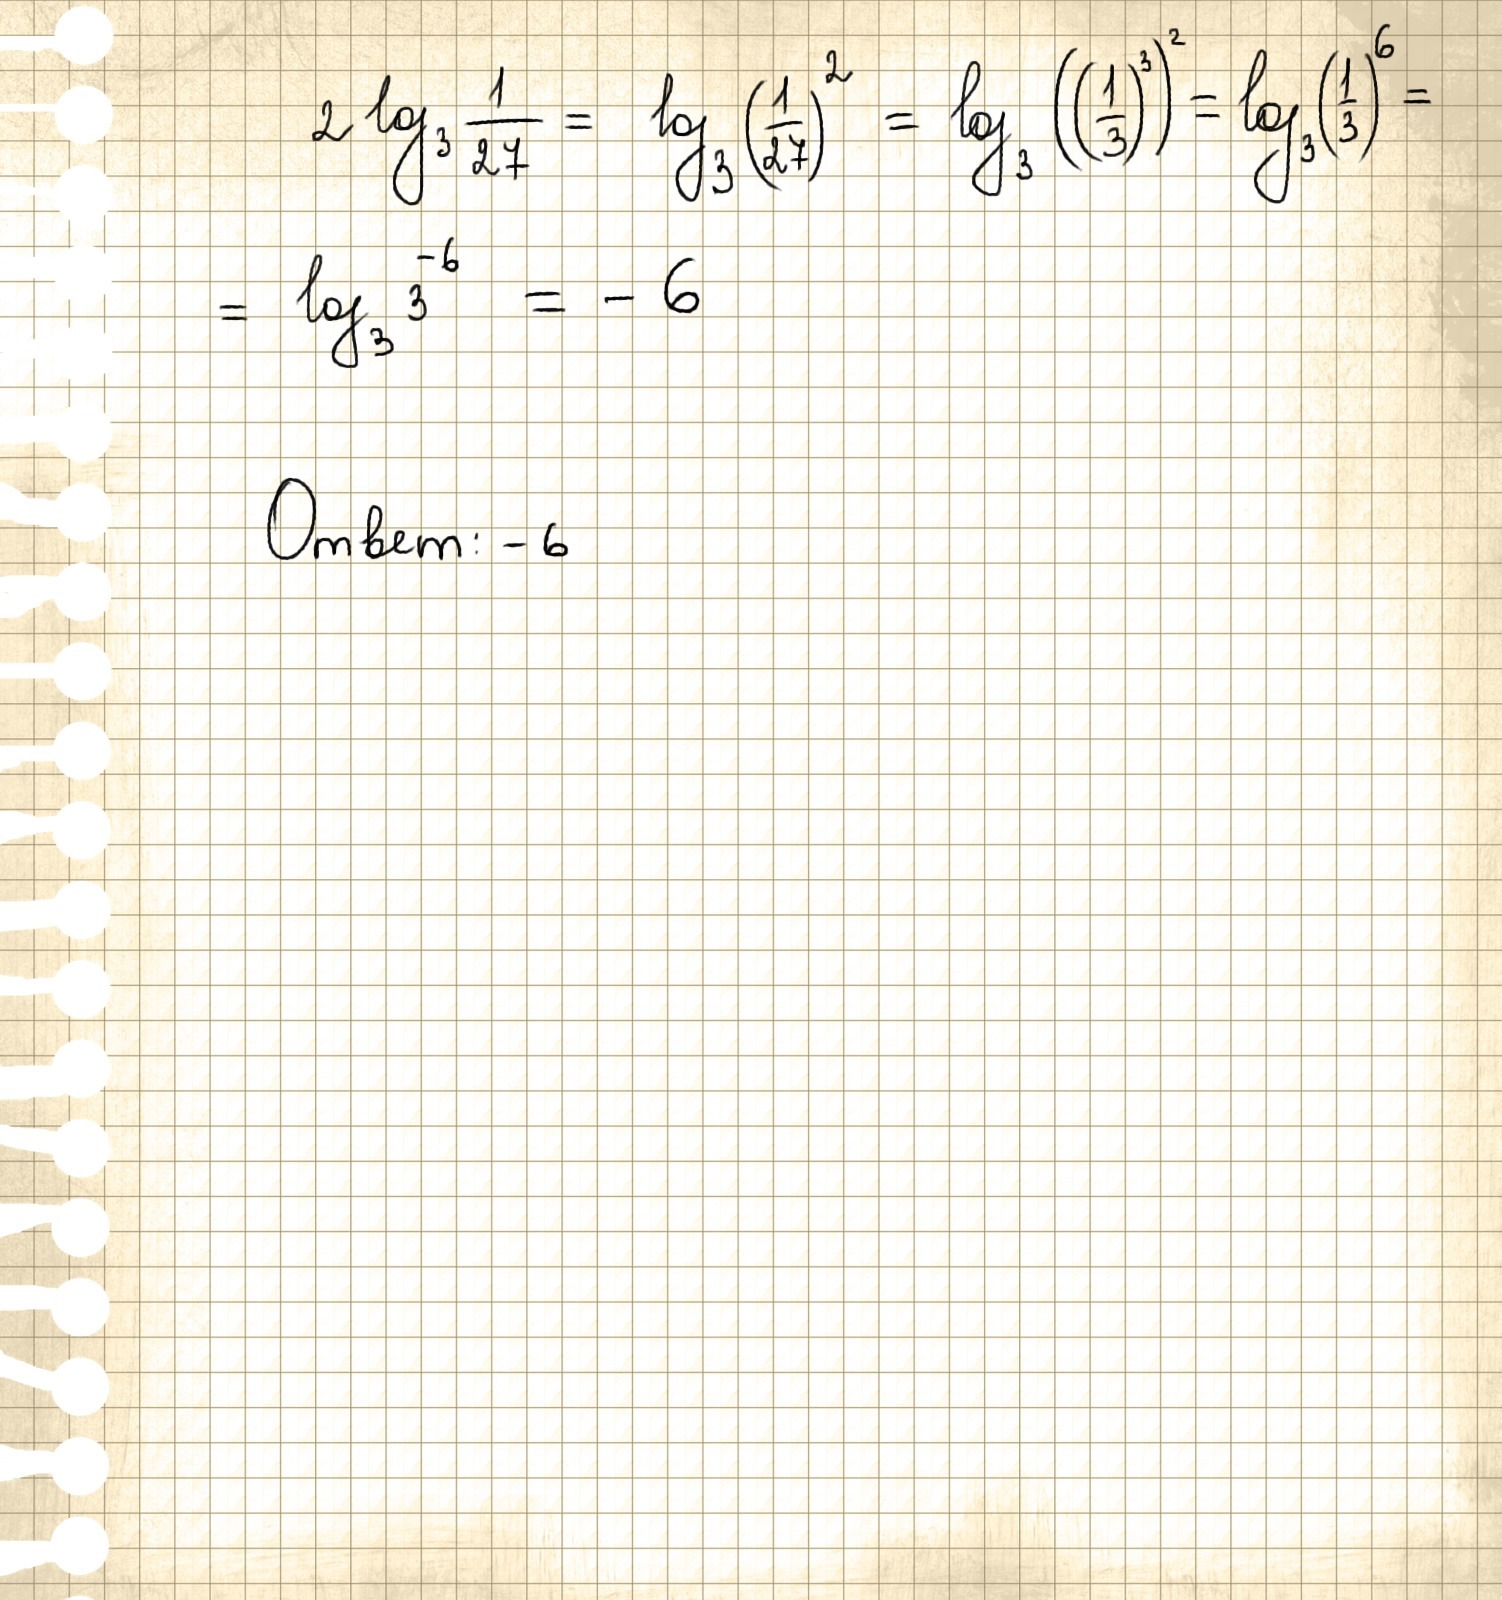 2 log₃ 1/27 = log₃ (1/27)² = log₃ ((1/3)³)² = log₃ (1/3)⁶ =
= log₃ 3⁻⁶ = - 6
Ответ: - 6